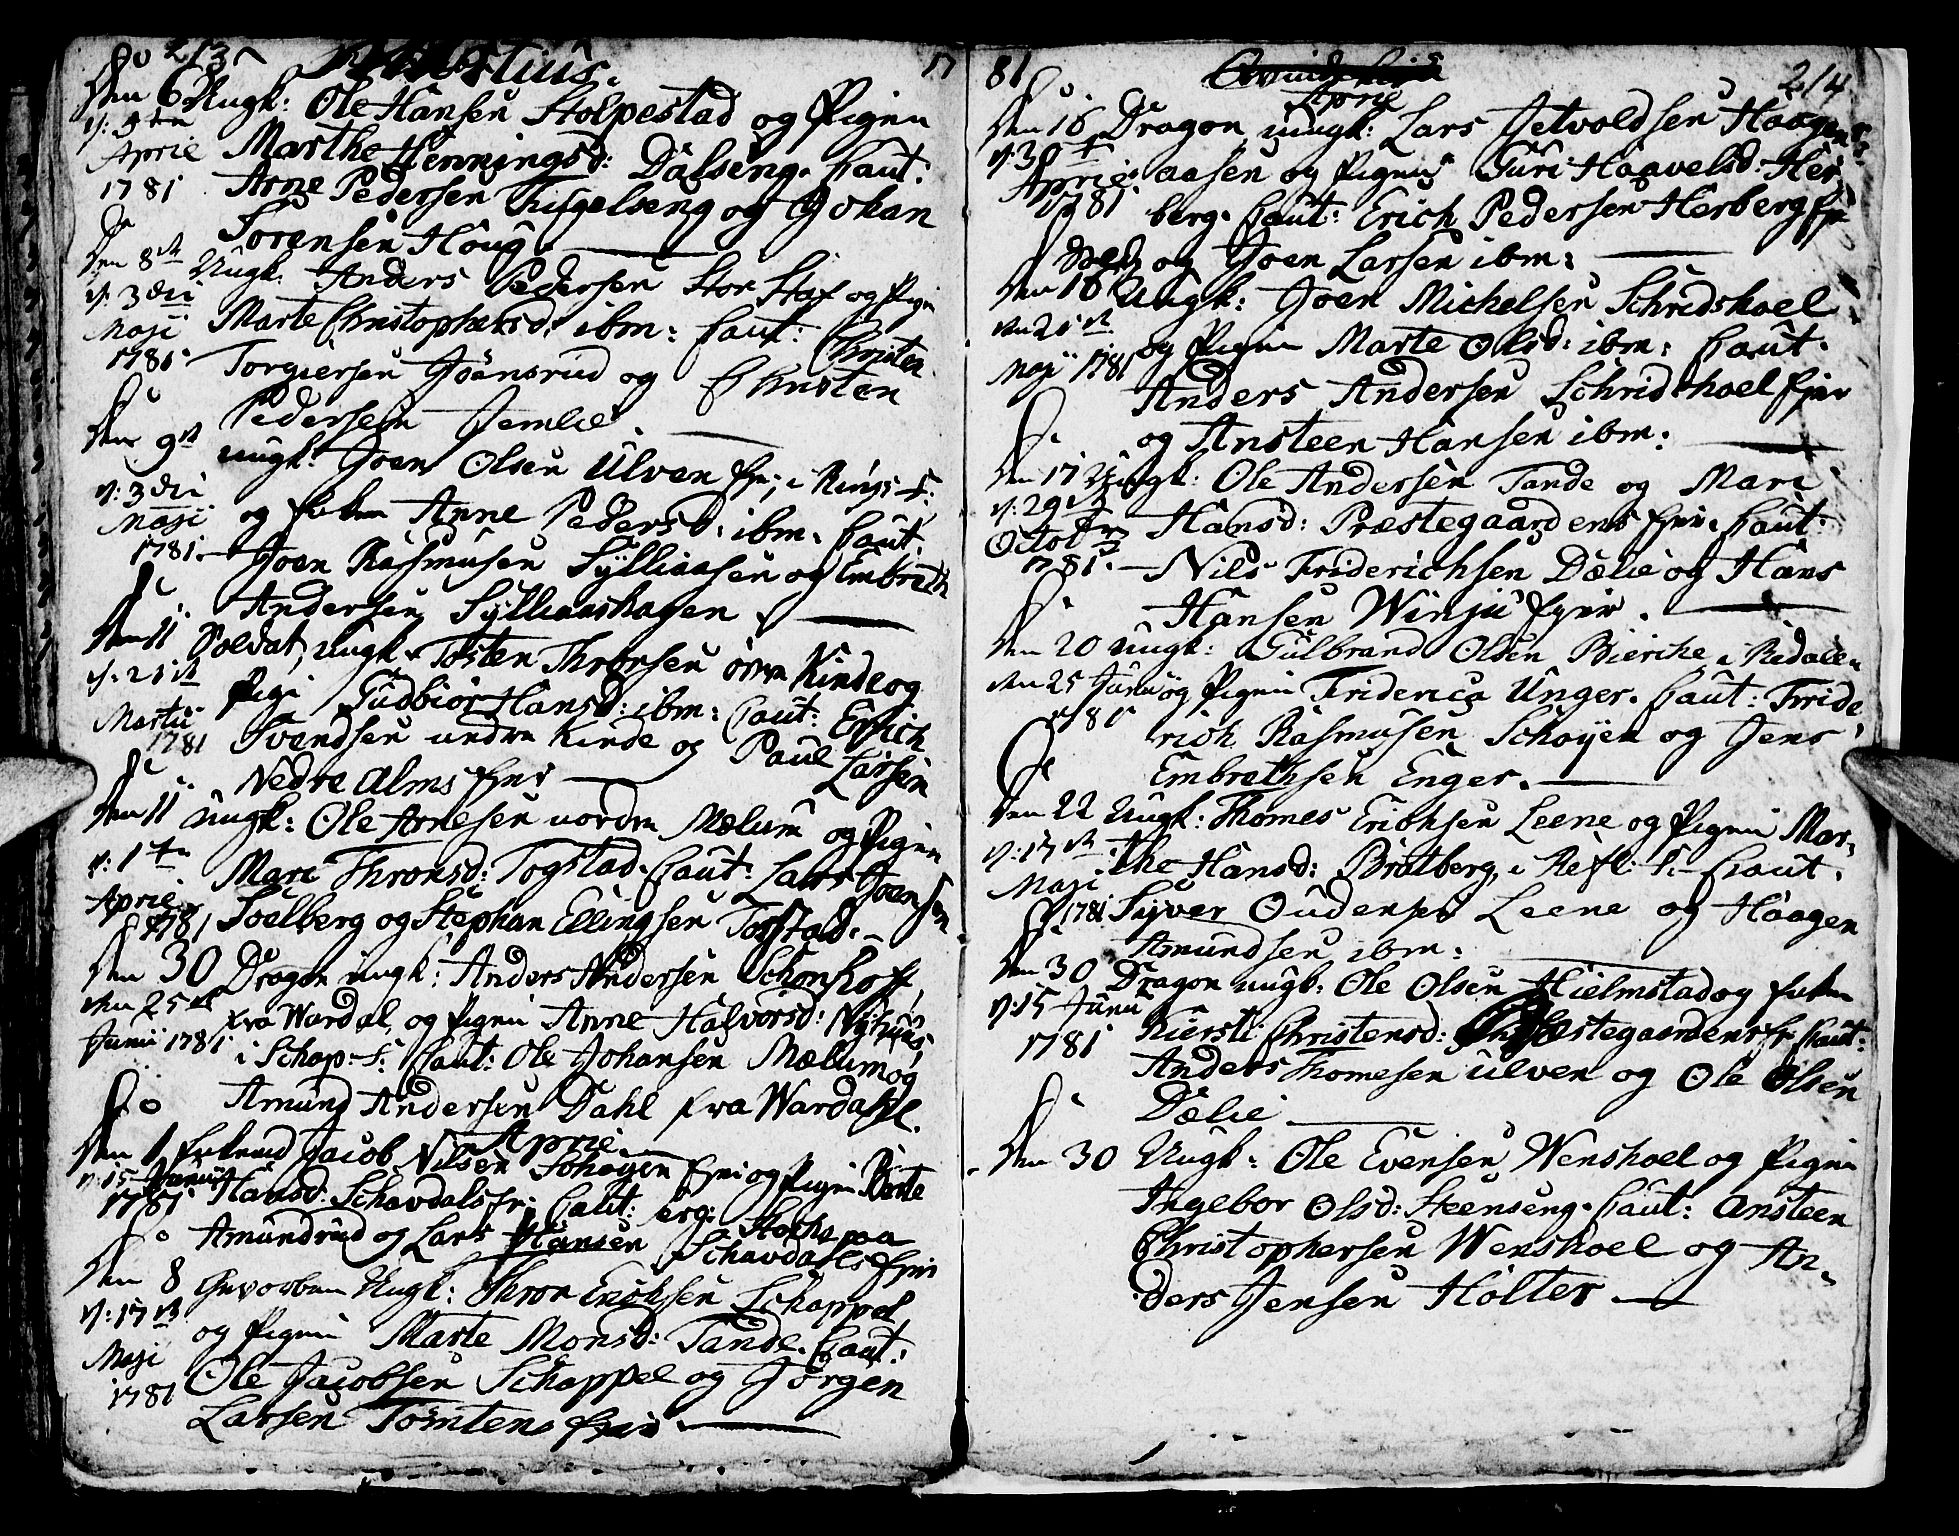 213
Martius.
17
den 6 Ungk: Ole Hansen Stolpestad og Pigen
Marthe Hennings d: Dalseng. Caut:
v: 9de
April
1781
Arne Pedersen Tingelseng og Johan
Sorensen Houg.
den 8de Ungk: Anders Pedersen Stor Staf og Pigen
v: 3die
Maji
1781
Marte Christophersd: ibm: Caut: Christen
Torgiersen Joensrud og Christen
Pedersen Jemlie.
den 9de ungk: Joen Olsen Ulven Ejer i Rings-f:
v: 3die
Maji
1781
og Anne Pedersd: ibm. Caut.
Joen Rasmusen Sylliaasen og Embreth
Andersen Sylliaashagen
den 11 Soldat, ungk. Tosten Thronsen öfre Kinde og
v: 21st
Martii
1781
Pige Gudbior Hansd: ibm: Caut: Erich
Svendsen undre Kinde og Paul Larsen
Nedre Alms Ejer
den 11 ungk: Ole Arnesen nordre Mælum og Pigen
v: 1te
April
1781
Mari Thronsd: Togstad. Caut: Lars Joensen
Soelberg og Stephan Ellingsen Togstad.
den 30 Dragon ungk: Anders Andersen Schonhoff
den 25de
Junii 1781
fra Wardal, og Pigen Anne Halvorsd: Nyhuus
i Schap-f: Caut: Ole Johansen Mælum og
Amund Andersen Dahl fra Wardahl.
April
den 1 Jacob Nilsen Schøyen Ejer og Pigen Birte
v: 15 Junii
1781
Hansd: Schavdals Ejer: Caut: Stocha paa
Amundrud og Lars Hansen Schavdals Ejer
den 8 Ungk: Thron Erichsen Schappel
v: 17de
Maji
1781
og Pigen Marte Monsd: Tande. Caut:
Ole Jacobsen Schappel og Jörgen
Larsen Tomtens Ejer
81
April
214
den 16 Dragon, ungk: Lars Jetvoldsen Haagens
v: 3
April
1781
aasen og Pigen Guri Haavelsd: Her-
berg. Caut: Erich Pedersen Herberg Ejer
og Joen Larsen ibm:
den 16 Ungk: Joen Michelsen Schridshoel
den 21st
Maji 1781
og Pigen Marte Olsd: ibm: Caut.
Anders Andersen Schridshoel Ejer
og Ansteen Hansen ibm:
den 17 Ungk: Ole Andersen Tande og Mari
v: 29
Octobr
1781.
Hansd: Præstegaardens Ejer. Caut:
Nils Friderichsen Dælie og Hans
Hansen Winju Ejer.
den 20 ungk: Gulbrand Olsen Bierche i Redalen
den 25 Junii
1781
og Pigen Friderica Unger. Caut: Fride-
rich Rasmusen Schøyen og Jens
Embrethsen Enger.
den 22 Ungk: Thomes Erichsen Leene og Pigen Mar-
v: 17de
Maji
1781
the Hansd: Bratberg, i Næs f: Caut.
Syver Oudensen Leene og Haagen
Amundsen ibm:
den 30 Dragon ungk: Ole Olsen Hielmstad og
v: 15 Junii
1781
Kiersti Christensd: Præstegaardens Ejer Caut:
Anders Thomesen Ulven og Ole Olsen
Dælie
den 30 Ungk: Ole Evensen Wenshoel og Pigen
Ingebor Olsd: Steenseng. Caut: Ansteen
Christophersen Wenshoel og An-
ders Jensen Holter